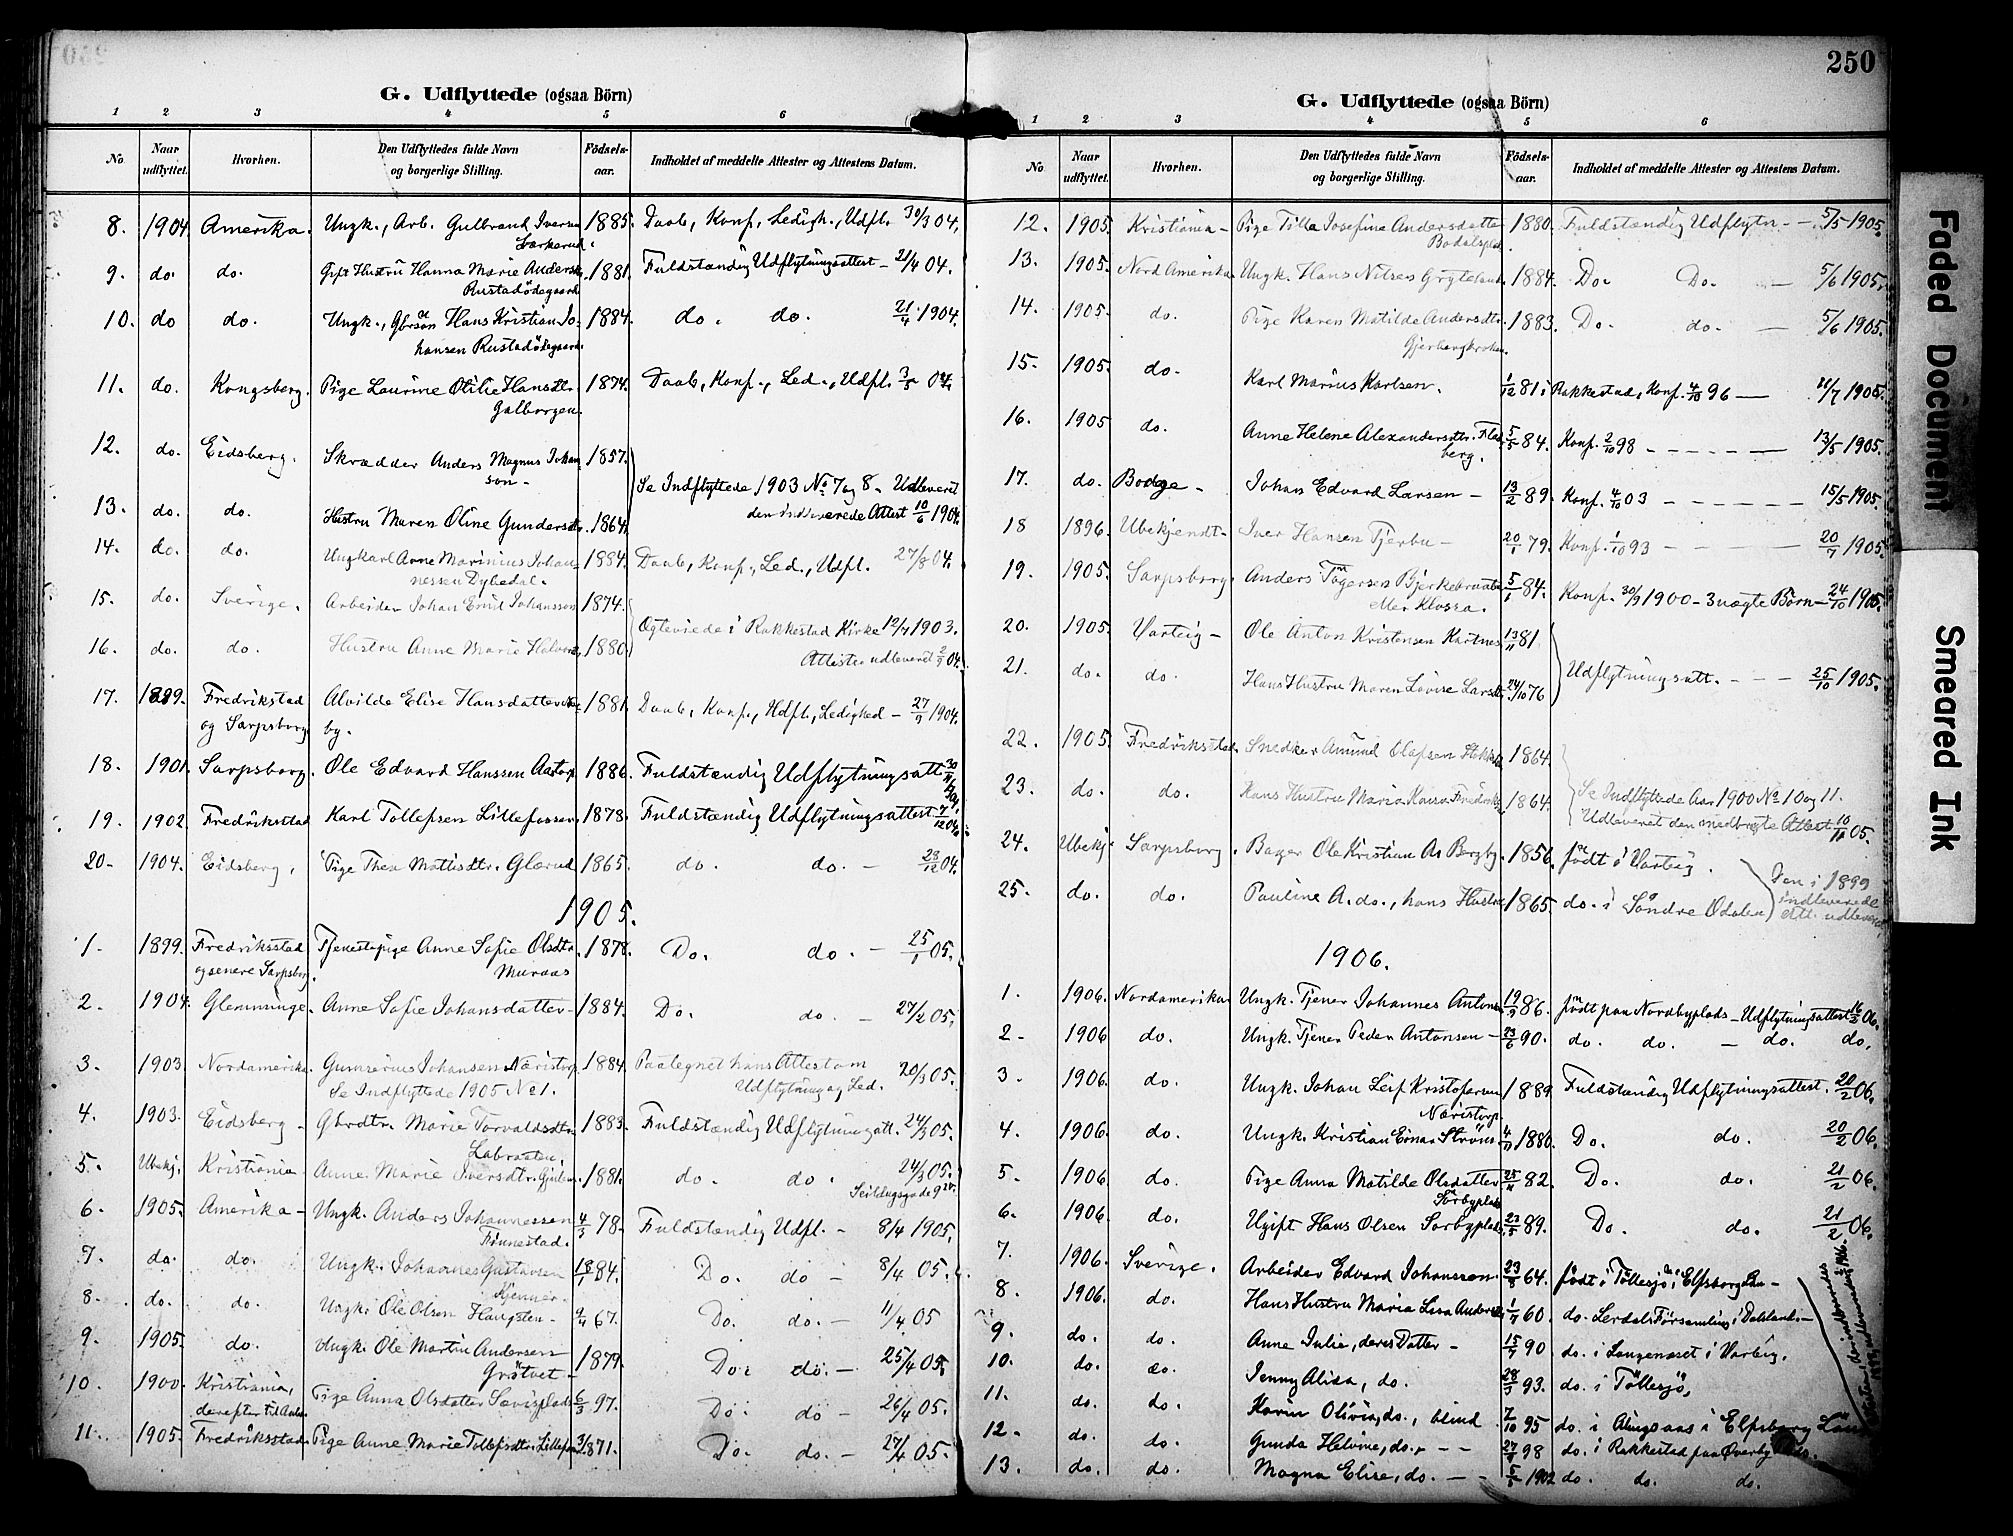 250
G. Udflyttede (ogsaa Börn)
1 2 3 4 5 6
No Naar udflyttet. Hvorhen. Den Udflyttedes fulde Navn og borgerlige Stilling. Födsels-aar. Indholdet af meddelte Attester og Attestens Datum.
8. 1904 Amerika. Ungk., Arb. Gulbrand Iversen 1885. Daab, Konf., Ledigh., Udfl. 30/3 04.
9. do. do. Gift Hustru Hanna Marie Andersd. 1881. Fuldstændig Udflytningsattest – 21/4 04.
Rustadødegaard
10. do do. Ungk., Gbrsøn Hans Kristian Jo- 1884. do. do. 21/4 1904.
hansen Rustadødegaard.
11. do. Kongsberg. Pige Laurine Otilie Hansdtr. 1874. Daab, Konf., Led., Udfl. 04.
Galborgen.
12. do. Eidsberg. Skrædder Anders Magnus Johan- 1857.
son – Se Indflyttede 1903 No 7 og 8 – Udleveret
13. do. do. Hustru Maren Oline Gundersdtr. 1864. den indleverede Attest 10/6 1904.
14. do. do. Ungkarl Arne Marinius Johan- 1884. Daab, Konf., Led., Udfl. 27/8 04.
nessen Dybedal.
15. do. Sverige. Arbeider Johan Emil Johansson 1874.
Ogteviede i Rakkestad Kirke 12/4 1903.
16. do. do. Hustru Anne Marie Halvors. 1880.
Attester udleveret 2/9 04.
17. 1899. Fredrikstad Alvilde Elise Hansdatter 1881. Daab, Konf., Udfl., Ledighed – 27/9 1904.
og Sarpsborg by.
18. 1901. Sarpsborg. Ole Edvard Hanssen Aastorp 1886. Fuldstændig Udflytningsatt. 30/11 04.
19. 1902. Fredriksstad Karl Tollefsen Lillefosser. 1878. Fuldstændig Udflytningsattest 7/12 04.
20. 1904. Eidsberg. Pige Thea Mattisdtr. Glærud 1865. do. do. – 23/12 04.
1905.
1. 1899. Fredriksstad Tjenestepige Anne Sofie Olsdtr. 1878. Do. do. – 25/1 05.
og senere Sarpsborg. Muraas
2. 1904. Glemminge. Anne Sofie Johansdatter – 1884. Do. do. – 27/2 05.
3. 1903. Nordamerika. Gunnerius Johansen Næristorp. 1884. Paategnet hans Attest om
Se Indflyttede 1905 No 1. Udflytning og Led. 20/3 05.
4. 1903. Eidsberg – Gbrdtr. Marie Torvaldsdtr. 1883. Fuldstændig Udflytningsatt. 24/3 05.
Labraaten.
5. Ubekj. Kristiania Anne Marie Iversdtr. 1881. do. do. 24/3 05.
Seildugsgade
6. 1905. Amerika – Ungk. Anders Johannessen 4/5 78. Fuldstændig Udfl. – 8/4 1905.
Finnestad.
7. do. do. Ungk. Johannes Gustavsen 18/1 84. Do. do – 8/4 05.
Kjenner.
8. do. do. Ungk. Ole Olsen Haugsten – 9/4 67. Do. do. – 11/4 05
9. 1905. do. Ungk. Ole Martin Andersen 1879. Do. do. – 25/4 05.
Grøtvet –
10. 1900. Kristiania, Pige Anna Olsdatter Sævisplads 6/3 97. Do. do – 26/4 05.
derefter til
11. 1905. Fredriksstad. Pige Anne Marie Tollefsdtr. 1871. Do. do. – 27/4 05.
G. Udflyttede (ogsaa Börn)
1 2 3 4 5 6
No Naar udflyttet. Hvorhen. Den Udflyttedes fulde Navn og borgerlige Stilling. Födsels-aar. Indholdet af meddelte Attester og Attestens Datum.
12. 1905. Kristiania – Pige Tilla Josefine Andersdatter 1880. Fuldstændig Udflytn – 5/5 1905.
Bodalspl.
13. 1905. Nord Amerika Ungk. Hans Nilsen 1884. Do. Do. – 5/6 1905.
14. 1905. do. Pige Karen Matilde Andersdtr. 1883. Do. do. – 5/6 1905.
15. 1905. do. Karl Marius Karlsen. 1/12 81 i Rakkestad, Konf. 4/10 96 – 11/7 1905.
16. 1905 do. Anne Helene Alexandersdtr. 5/5 84. Konf. 2/10 98 – 13/5 1905.
berg.
17. do. Bodge – Johan Edvard Larsen – 13/2 89. Konf. 4/10 03 – 15/5 1905.
18 1896. Ubekjendt – Iver Hansen Tjerbu – 20/1 79. Konf. 1/10 93 – 20/7 1905.
19. 1905. Sarpsborg. Anders Tøgersen Bjerkebraaten 5/1 84. Konf. 30/9 1900 – 3 uægte Børn – 24/10 1905.
eller Klossa.
20. 1905. Varteig – Ole Anton Kristensen Kartnes 13/11 81
Udflytningsatt. – 25/10 1905.
21. do. do. Hans Hustru Maren Lovise Larsdtr. 24/10 76
22. 1905. Fredriksstad. Snedker Amund Olafsen 1864.
23. do. do. Hans Hustru Maria 1864. Se Indflyttede Aar 1900 No 10 og 11.
Udleveret den medbragte Attest 10/11 05.
24. Ubekj. Sarpsborg. Bager Ole Kristian As Bergby. 1856. født i Varteig.
25. do. do. Pauline A. do., hans Hustru 1865. do. i Søndre Odalen
Den i 1899
indleverede
Att. udleveret
1906.
1. 1906. Nordamerika Ungk. Tjener Johannes Antonsen 19/9 86. født paa Nordbyplads – Udflytningsattest 16/2 06.
2 – 1906 do. Ungk. Tjener Peder Antonsen – 23/6 90. do. do. – do. do.
3. 1906. do. Ungk. Johan Leif Kristofersen 1889. Fuldstændig Udflytningsattest. 20/2 06.
Næristorp.
4. 1906. do. Ungk. Kristian Einar Strøm – 1880. Do. do. 20/2 06.
5. 1906. do. Pige Anna Matilde Olsdatter 82. Do. do. 21/2 06.
Sørbyplads
6. 1906. do. Ugift Hans Olsen Sørbyplads 23/5 89. Do. do. 21/2 06.
7. 1906. Sverige. Arbeider Edvard Johanssen. 23/8 64. født i Töllesjö, i Elfsborgs Län –
8. 1906. do. Hans Hustru Maria Lisa Andersd. 1/7 60. do. Lerdals Församling i Dalsland. –
9. do. do. Anne Julie, deres Datter – 15/7 90 do. i Langenæset i Varteig.
10. do. do. Jenny Alida, do. 28/3 93. do. i Töllesjö,
11. do. do. Karin Olivia, do., blind 7/10 95 do. i Alingsaas i Elfsborg Län
12. do. do. Gunda Helvine, do. – – 27/7 98 do. i Rakkestad paa Øverby
13. do. do. Magna Elise, do. – 5/5 1902 do. do. do.
Faded Document
Smeared Ink